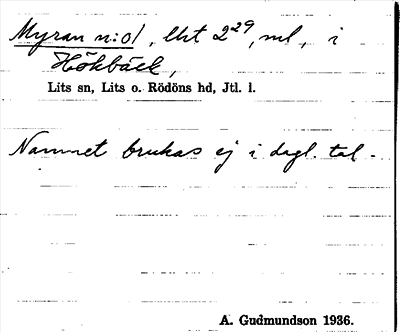 Myran n:o 1, lht 2²⁹, ml, i
Hökbäck,
Lits sn, Lits o. Rödöns hd, Jtl. l.
Namnet brukas ej i dagl. tal.
A. Gudmundson 1936.